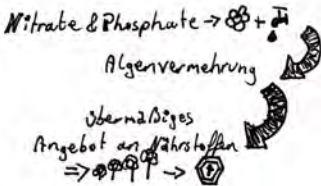 Nitrate & Phosphate → +
Algenvermehrung
übermäßiges
Angebot an Nährstoffen
⇒ →